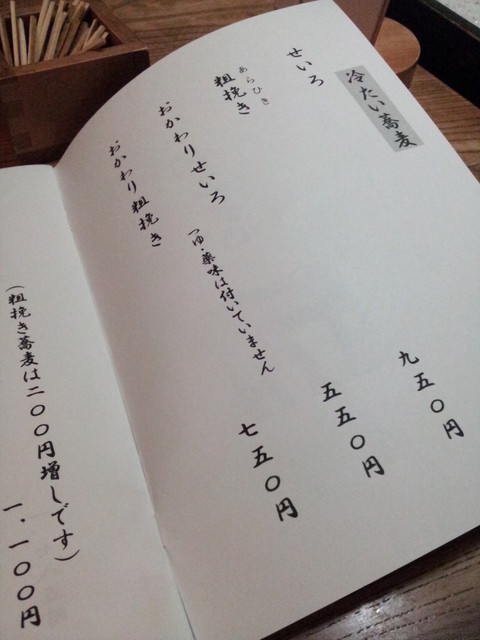 冷たい蕎麦
せいろ
あらびき
粗挽き 九五〇円
おかわりせいろ 五五〇円
つゆ・薬味は付いていません
おかわり粗挽き 七五〇円
一・一〇〇円
(粗挽き蕎麦は二〇〇円増しです)